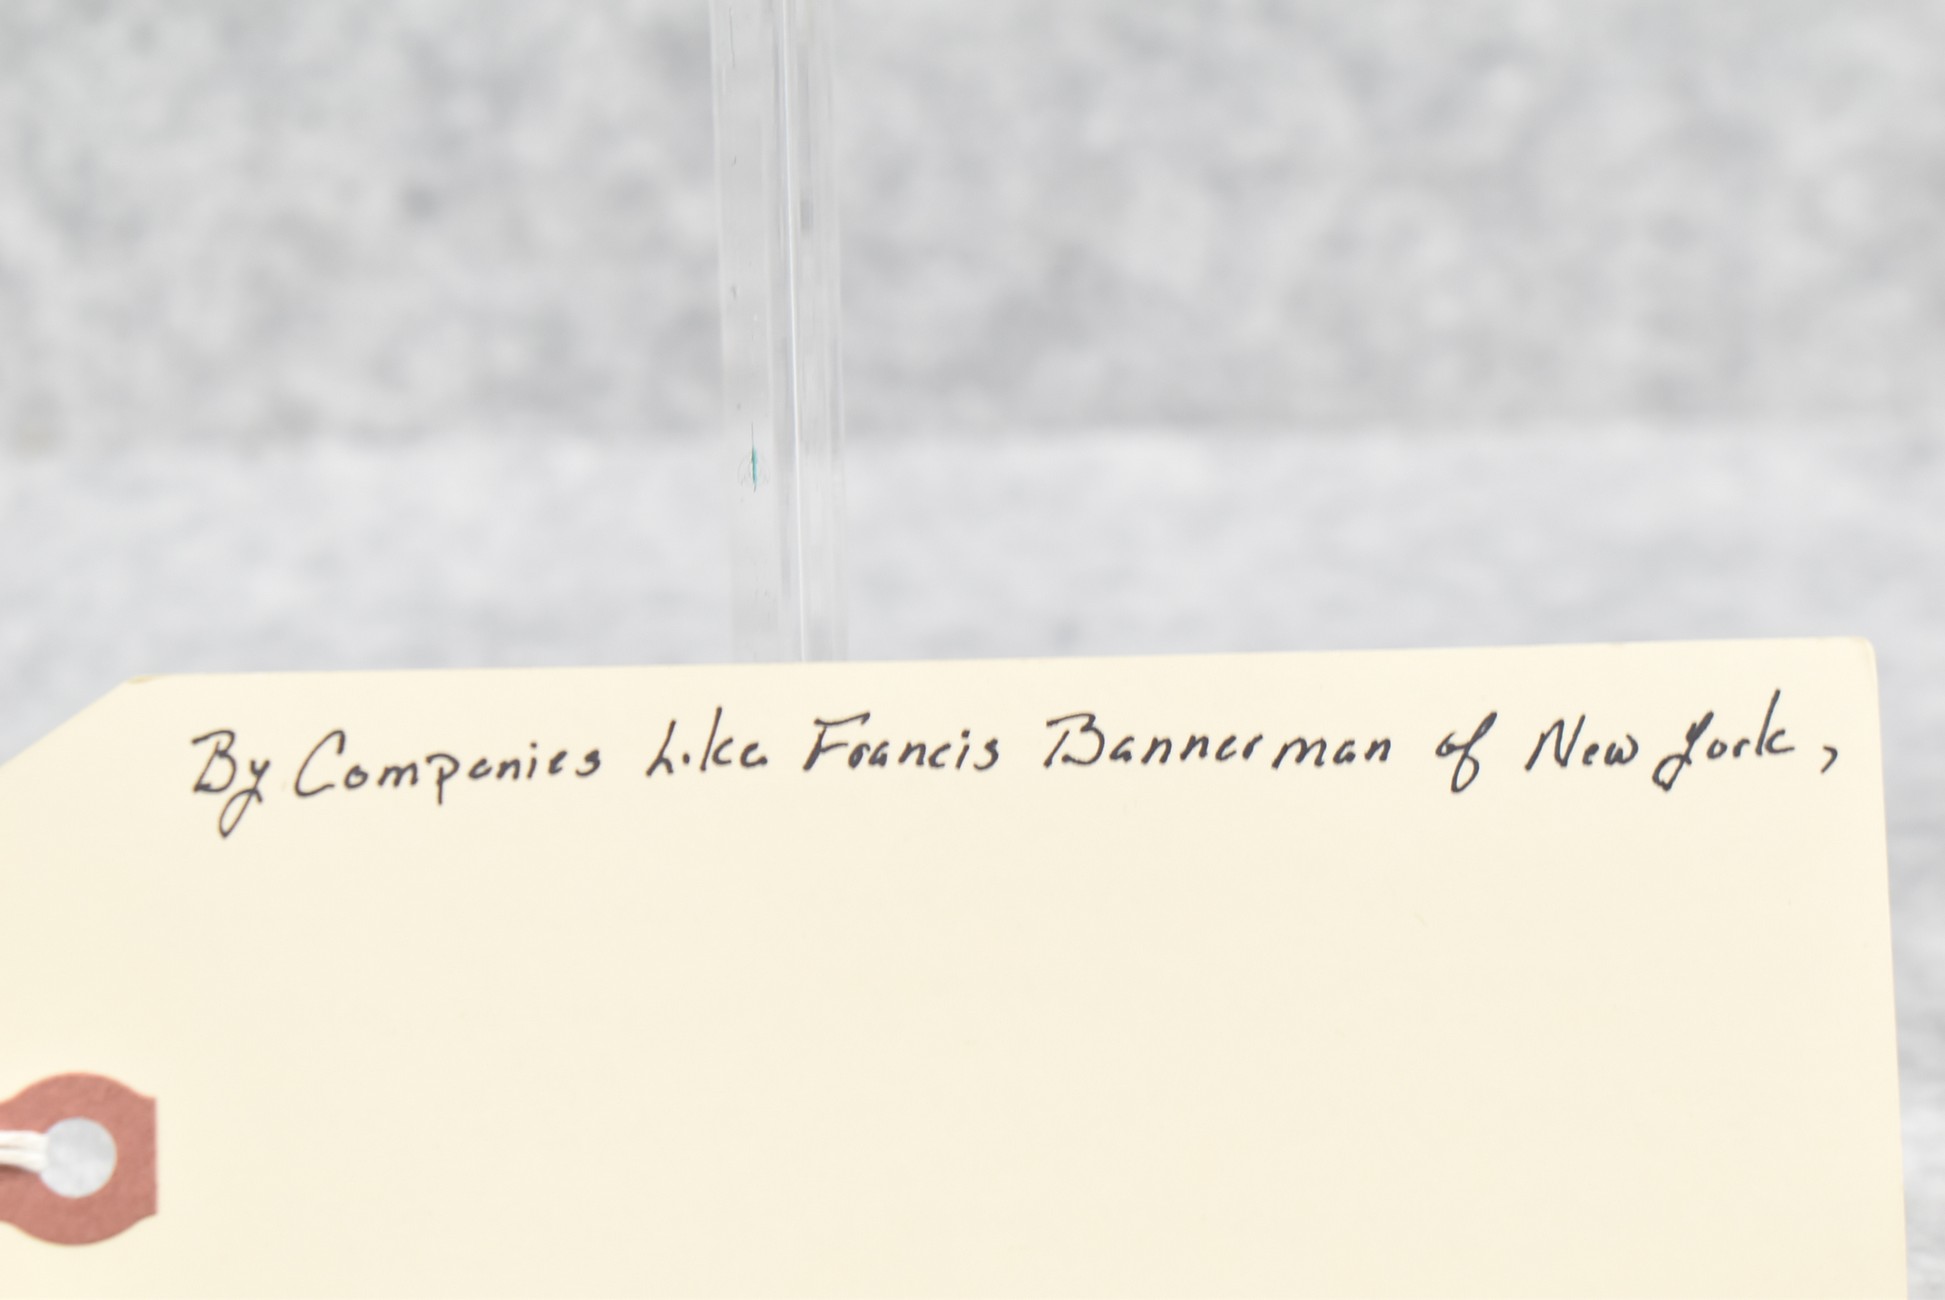 By Companies Like Francis Bannerman of New York,